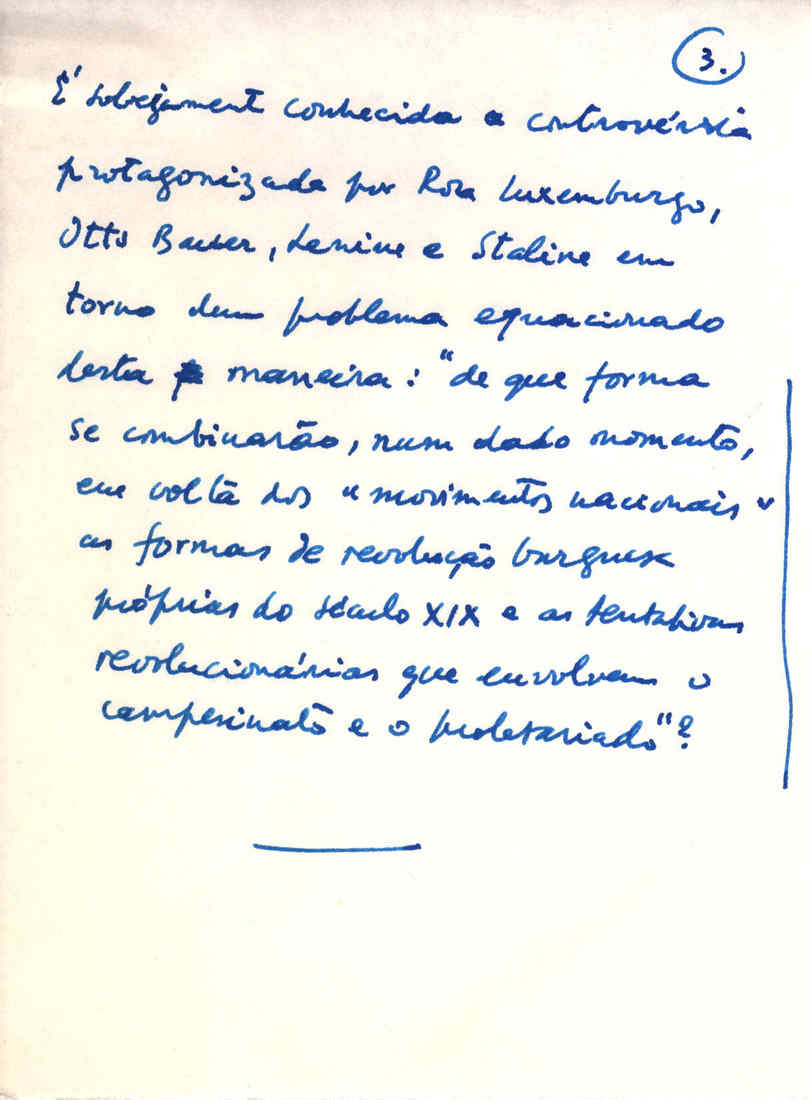 3.
É sobejament conhecida a controvérsia
protagonizada por Rosa Luxemburgo,
Otto Bauer, Lenine e Staline em
torno dum problema equacionado
desta maneira: "de que forma
se combinarão, num dado momento,
em volta dos "movimentos nacionais"
as formas de revolução burguesa
próprias do século XIX e as tentativas
revolucionárias que envolvam o
campesinato e o proletariado"?